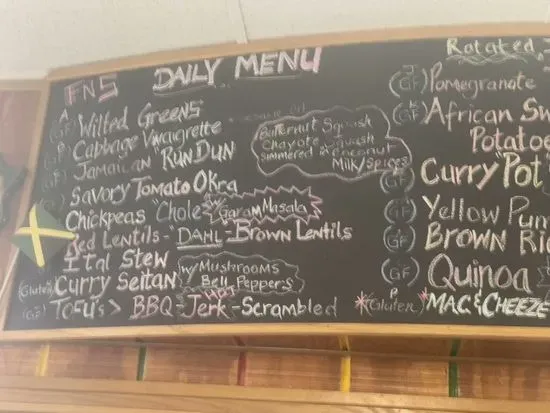 FNS DAILY MENU
(GF) Wilted Greens
(GF) Cabbage Vinaigrette
(GF) Jamaican RUNDUN
Butternut Squash
Chayote Squash
Simmered Coconut
Milk Spices
Savory Tomato Okra
Chickpeas "Chole" w/ Garam Masala
Red Lentils - "DAHL" - Brown Lentils
Ital Stew
(Gluten) Curry Seitan
w/ Mushrooms
Bell Peppers
(GF) Tofu's > BBQ - HOT Jerk - Scrambled
Rotated
(GF) Pomegranate
(GF) African Sw
Potatoe
(GF) Curry "Pot"
(GF) Yellow Pum
(GF) Brown Ric
(GF) Quinoa
*(Gluten) *MAC & CHEEZE